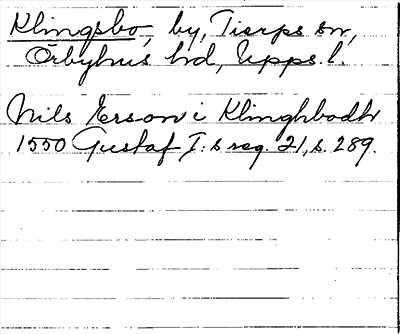 Klingsbo, by, Tierps sn,
Örbyhus hd, Upps. l.
Nils Erson i Klinghbodh
1550 Gustaf I:s reg. 21, s. 289.